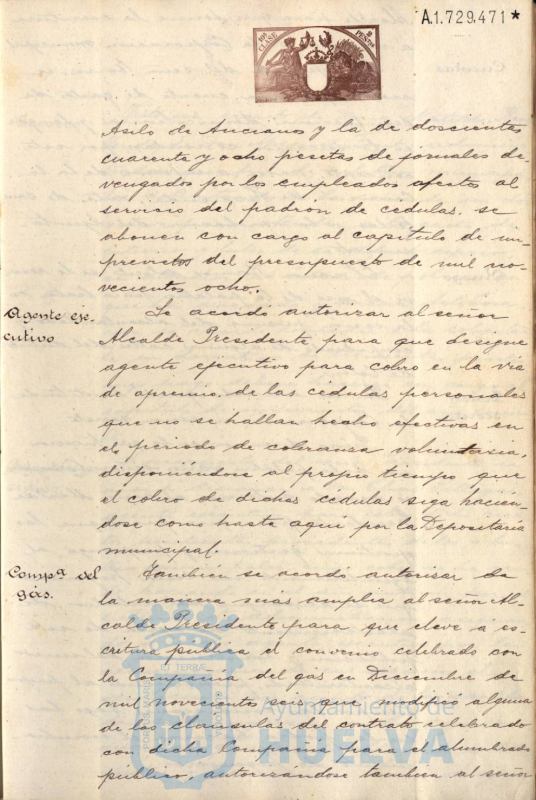 A.1.729.471*
10ª CLASE
2 PESETAS
Asilo de Ancianos y la de doscientas
cuarenta y ocho pesetas de jornales de-
vengados por los empleados afectos al
servicio del padrón de cédulas, se
abonen con cargo al capítulo de im-
previstos del presupuesto de mil no-
vecientos ocho.
Agente eje-
cutivo
Se acordó autorizar al señor
Alcalde Presidente para que designe
agente ejecutivo para cobro en la vía
de apremio, de las cédulas personales
que no se hallan hecho efectivas en
el periodo de cobranza voluntaria,
disponiéndose al propio tiempo que
el cobro de dichas cédulas siga hacién-
dose como hasta aquí por la Depositaría
municipal.
Compª del
gas.
También se acordó autorizar de
la manera más amplia al señor Al-
calde Presidente para que eleve á es-
critura pública el convenio celebrado con
la Compañía del gas en Diciembre de
mil novecientos seis que modificó alguna
de las cláusulas del contrato celebrado
con dicha Compañía para el alumbrado
público, autorizándose también al señor
Ayuntamiento de
HUELVA